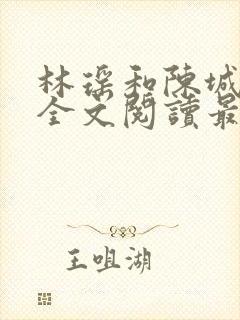 林瑶和陳城
全文閱讀最
王咀湖